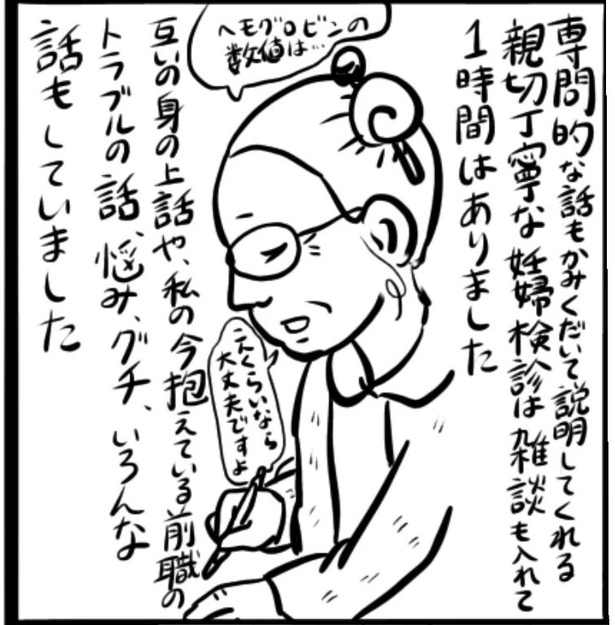 専門的な話もかみくだいて説明してくれる
親切丁寧な妊婦検診は雑談も入れて
1時間はありました
ヘモグロビンの
数値は…
これくらいなら
大丈夫ですよ
互いの身の上話や、私の今抱えている前職の
トラブルの話、悩み、グチ、いろんな
話もしていました